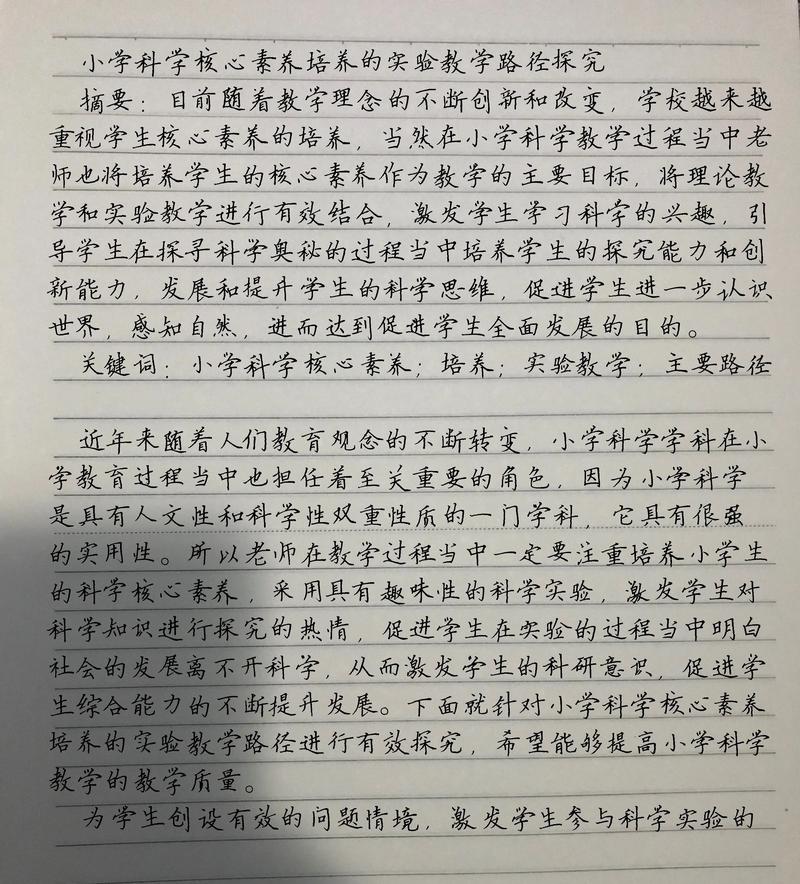 小学科学核心素养培养的实验教学路径探究
摘要：目前随着教学理念的不断创新和改变，学校越来越
重视学生核心素养的培养，当然在小学科学教学过程当中老
师也将培养学生的核心素养作为教学的主要目标，将理论教
学和实验教学进行有效结合，激发学生学习科学的兴趣，引
导学生在探寻科学奥秘的过程当中培养学生的探究能力和创
新能力，发展和提升学生的科学思维，促进学生进一步认识
世界，感知自然，进而达到促进学生全面发展的目的。
关键词：小学科学核心素养；培养；实验教学；主要路径
近年来随着人们教育观念的不断转变，小学科学学科在小
学教育过程当中也担任着至关重要的角色，因为小学科学
是具有人文性和科学性双重性质的一门学科，它具有很强
的实用性。所以老师在教学过程当中一定要注重培养小学生
的科学核心素养，采用具有趣味性的科学实验，激发学生对
科学知识进行探究的热情，促进学生在实验的过程当中明白
社会的发展离不开科学，从而激发学生的科研意识，促进学
生综合能力的不断提升发展。下面就针对小学科学核心素养
培养的实验教学路径进行有效探究，希望能够提高小学科学
教学的教学质量。
为学生创设有效的问题情境，激发学生参与科学实验的